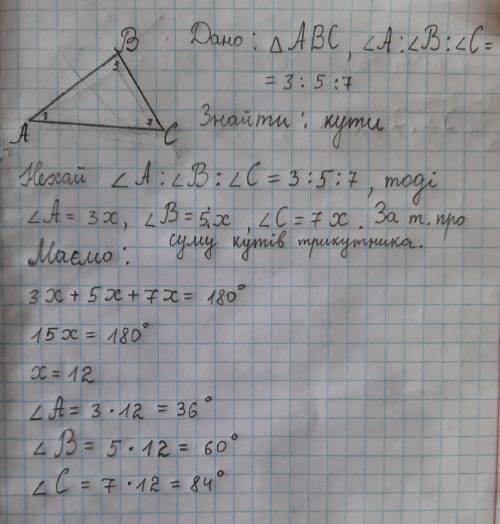 B
3
A
3
7
C
Дано: △ABC, ∠A:∠B:∠C=
= 3:5:7
Знайти: кути
Нехай ∠A:∠B:∠C = 3:5:7, тоді
∠A = 3x, ∠B = 5x, ∠C = 7x. За т. про
суму кутів трикутника.
Маємо:
3x + 5x + 7x = 180°
15x = 180°
x = 12
∠A = 3 · 12 = 36°
∠B = 5 · 12 = 60°
∠C = 7 · 12 = 84°